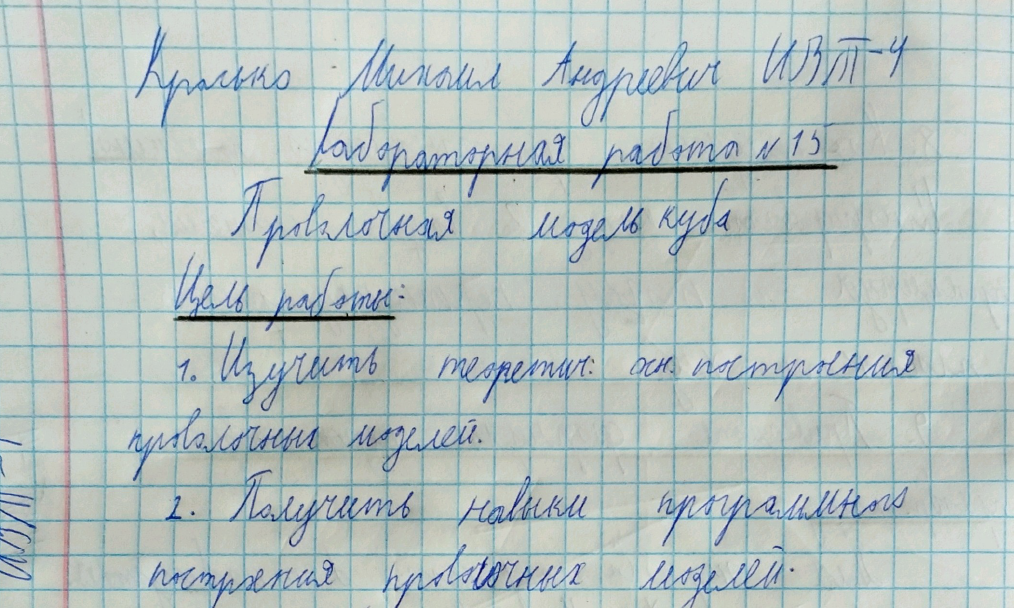 Михаил Андреевич ИВТ-4
Лабораторная работа № 15
Проволочная модель куба
Цель работы:
1. Изучить теоретич. осн. построения
проволочных моделей.
2. Получить навыки программного
построения проволочных моделей.